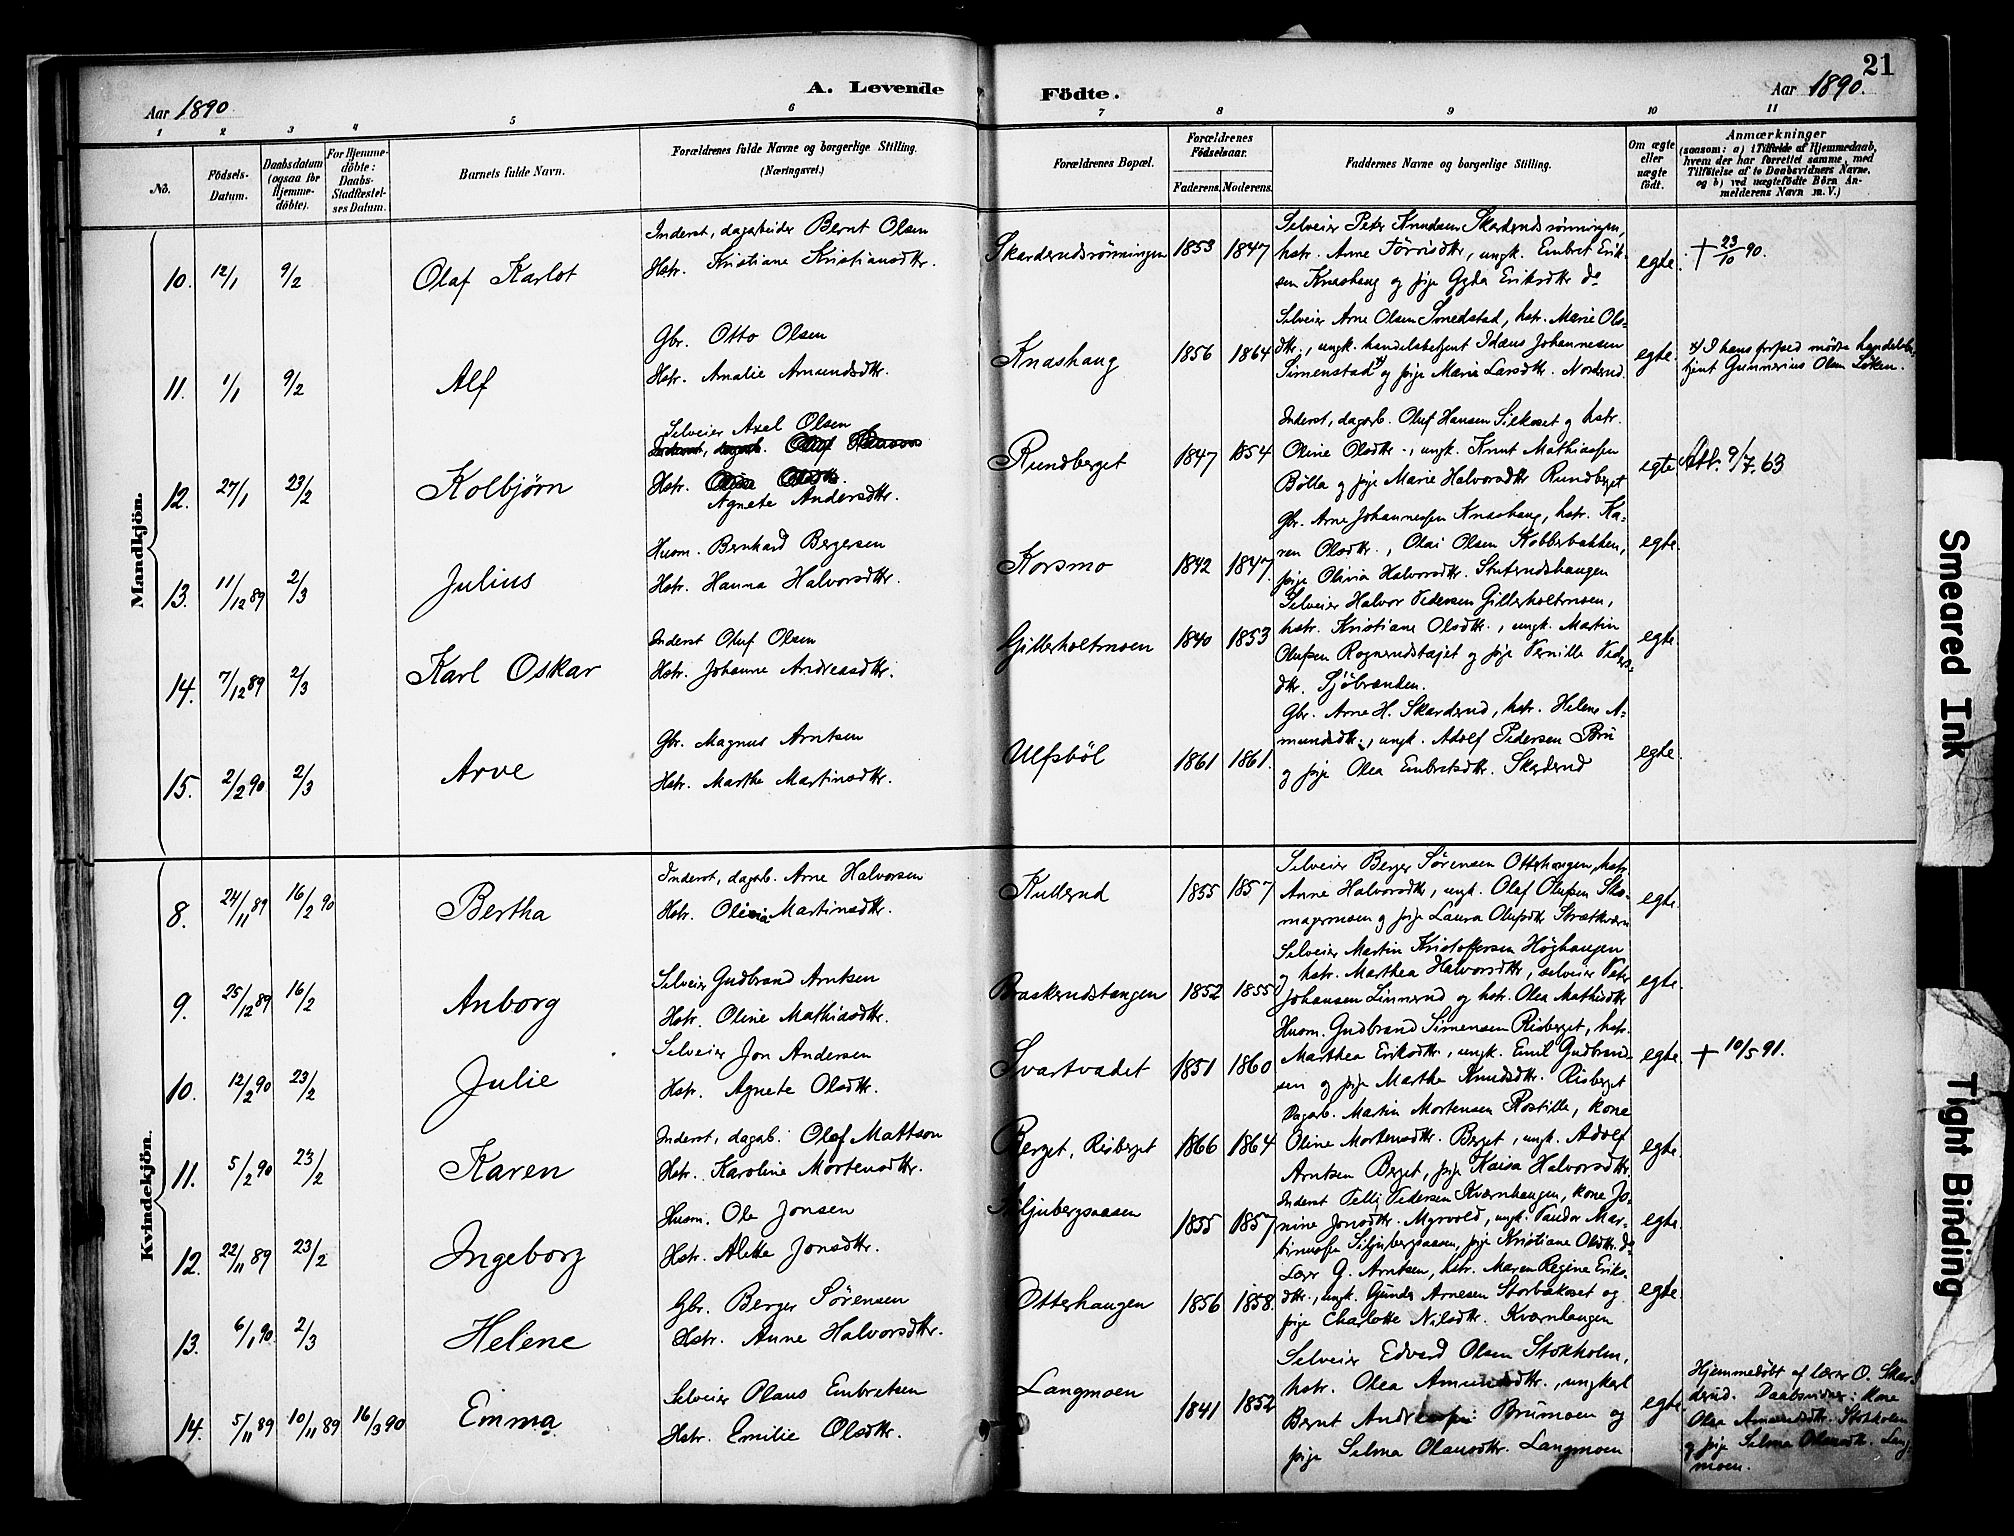 21
A. Levende Födte.
Aar 1890.
Aar 1890.
1 2 3 4 5 6 7 8 9 10 11
No.
Födsels-Datum.
Daabsdatum (ogsaa for Hjemme-döbte).
For Hjemme-döbte: Daabs-Stadfæstel-ses Datum.
Barnets fulde Navn.
Forældrenes fulde Navne og borgerlige Stilling.
(Næringsvei.)
Forældrenes Bopæl.
Forældrenes Födselsaar.
Faderens. Moderens.
Faddernes Navne og borgerlige Stilling.
Om ægte eller uægte födt.
Anmærkninger
(saasom: a) i Tilfælde af Hjemmedaab,
hvem der har forrettet samme, med
Tilföielse af to Daabsvidners Navne,
og b) ved uægtefödte Börn An-
melderens Navn m. V.)
Mandkjön.
10. 12/1 9/2 Olaf Karlot
Inderst, dagarbeider Bernt Olsen
Hstr. Kristiane Kristiansdtr.
Skarderudsrønningen 1853 1847
Selveier Peter Knudsen Skarderudsrønningen,
hstr. Anne Torrisdtr, ungk. Embret Erik-
sen Knashaug og pige Gyda Eriksdtr do
egte. † 23/10 90.
11. 1/1 9/2 Alf
Gbr. Otto Olsen
Hstr. Amalie Amundsdtr.
Knashaug 1856 1864
Selveier Arne Olsen Smedstad, hstr. Marie Ols-
dtr., ungk. handelsbetjent Idæus Johannesen
Simenstad x) og pige Marie Larsdtr. Norderud.
egte. x) I hans forfald mødte handelsbe-
tjent Gunnerius Olsen Løken.
12. 27/1 23/2 Kolbjørn
Selveier Axel Olsen
Inderst, dagarb. Oluf Hansen
Hstr. Oline Olsdtr.
Agnete Andersdtr.
Rundberget 1847 1854
Inderst, dagarb. Oluf Hansen Silkoset og hstr.
Oline Olsdtr., ungk. Knut Mathiassen
Bølla og pige Marie Halvorsdtr Rundberget
egte Att. 9/7. 63
13. 11/12 89 2/3 Julius
Husm. Bernhard Bergersen
Hstr. Hanna Halvorsdtr.
Korsmo 1842 1847.
Gbr. Arne Johannessen Knashaug, hstr. Ka-
ren Olsdtr., Olai Olsen Kobberbakken,
pige Olivia Halvorsdtr. Stuterudshaugen
egte.
14. 7/12 89 2/3 Karl Oskar
Inderst Oluf Olsen
Hstr. Johanne Andreasdtr.
Gillerholtmoen 1840 1853
Selveier Halvor Pedersen Gillerholtmoen,
hstr. Kristiane Olsdtr., ungk. Martin
Olufsen Rognerudstajet og pige Pernille Peders-
dtr. Sjøbranden.
egte.
15. 2/2 90 2/3 Arve
Gbr. Magnus Arntsen
Hstr. Marthe Martinsdtr.
Ulfsböl 1861 1861.
Gbr. Arne H. Skarderud, hstr. Helene A-
mundsdtr., ungk. Adolf Pedersen Bru
og pige Olea Embretsdtr. Skarderud
egte.
Kvindekjön.
8. 24/11 89 16/2 90 Bertha
Inderst, dagarb. Arne Halvorsen
Hstr. Olivia Martinsdtr.
Kullerud 1855 1857
Selveier Berger Sørensen Otterhaugen, hstr.
Anne Halvorsdtr, ungk. Olaf Olufsen Sko-
magermoen og pige Laura Olufsdtr Strætkværn
egte.
9. 25/12 89 16/2 Anborg
Selveier Gudbrand Arntsen
Hstr. Oline Mathiasdtr.
Braskerudstangen 1852 1855
Selveier Martin Kristoffersen Høghaugen
og hstr. Marthea Halvorsdtr, selveier Peter
Johansen Linnerud og hstr. Olea Mathisdtr
egte.
10. 12/2 90 23/2 Julie
Selveier Jon Andersen
Hstr. Agnete Olsdtr.
Svartvadet 1851 1860
Husm. Gudbrand Simensen Risberget, hstr.
Marthea Eriksdtr, ungk. Emil Gudbrand-
sen og pige Marthe Knudsdtr. Risberget
egte. † 10/5 91.
11. 5/2 90 23/2 Karen
Inderst, dagarb. Olaf Mattson
Hstr. Karoline Mortensdtr.
Berget, Risberget 1866 1864
Dagarb. Martin Mortensen Rostille, kone
Oline Mortensdtr. Berget, ungk. Adolf
Arntsen Berget, pige Kaisa Halvorsdtr.
egte.
12. 22/11 89 23/2 Ingeborg
Husm. Ole Jonsen
Hstr. Alette Jonsdtr.
Siljubergsaasen 1855 1857
Inderst Pelli Pedersen Kværnhaugen, kone Jo-
nine Jonsdtr. Myrvold, ungk. Peder Mar-
tinussen Siljubergsaasen, pige Kristiane Olsdtr. do
egte.
13. 6/1 90 2/3 Helene
Gbr. Berger Sørensen
Hstr. Anne Halvorsdtr.
Otterhaugen 1856 1858.
Lærer G. Arntsen, hstr. Maren Regine Eriks-
dtr., ungk. Gunder Arnesen Storbækoset og
pige Charlotte Nilsdtr. Kværnhaugen
egte.
14. 5/11 89 10/11 89 16/3 90 Emma
Selveier Olaus Embretsen
Hstr. Emilie Olsdtr.
Langmoen 1841 1852
Selveier Edvard Olsen Stokholm,
hstr. Olea Amundsdtr., ungkarl
Bernt Andreassen Brumoen og
pige Selma Olausdtr. Langmoen
egte.
Hjemmedøbt af lærer O. Skar-
derud. Daabsvidner: kone
Olea Amundsdtr. Stokholm
og pige Selma Olausdtr. Lang-
moen.
Smeared Ink
Tight Binding